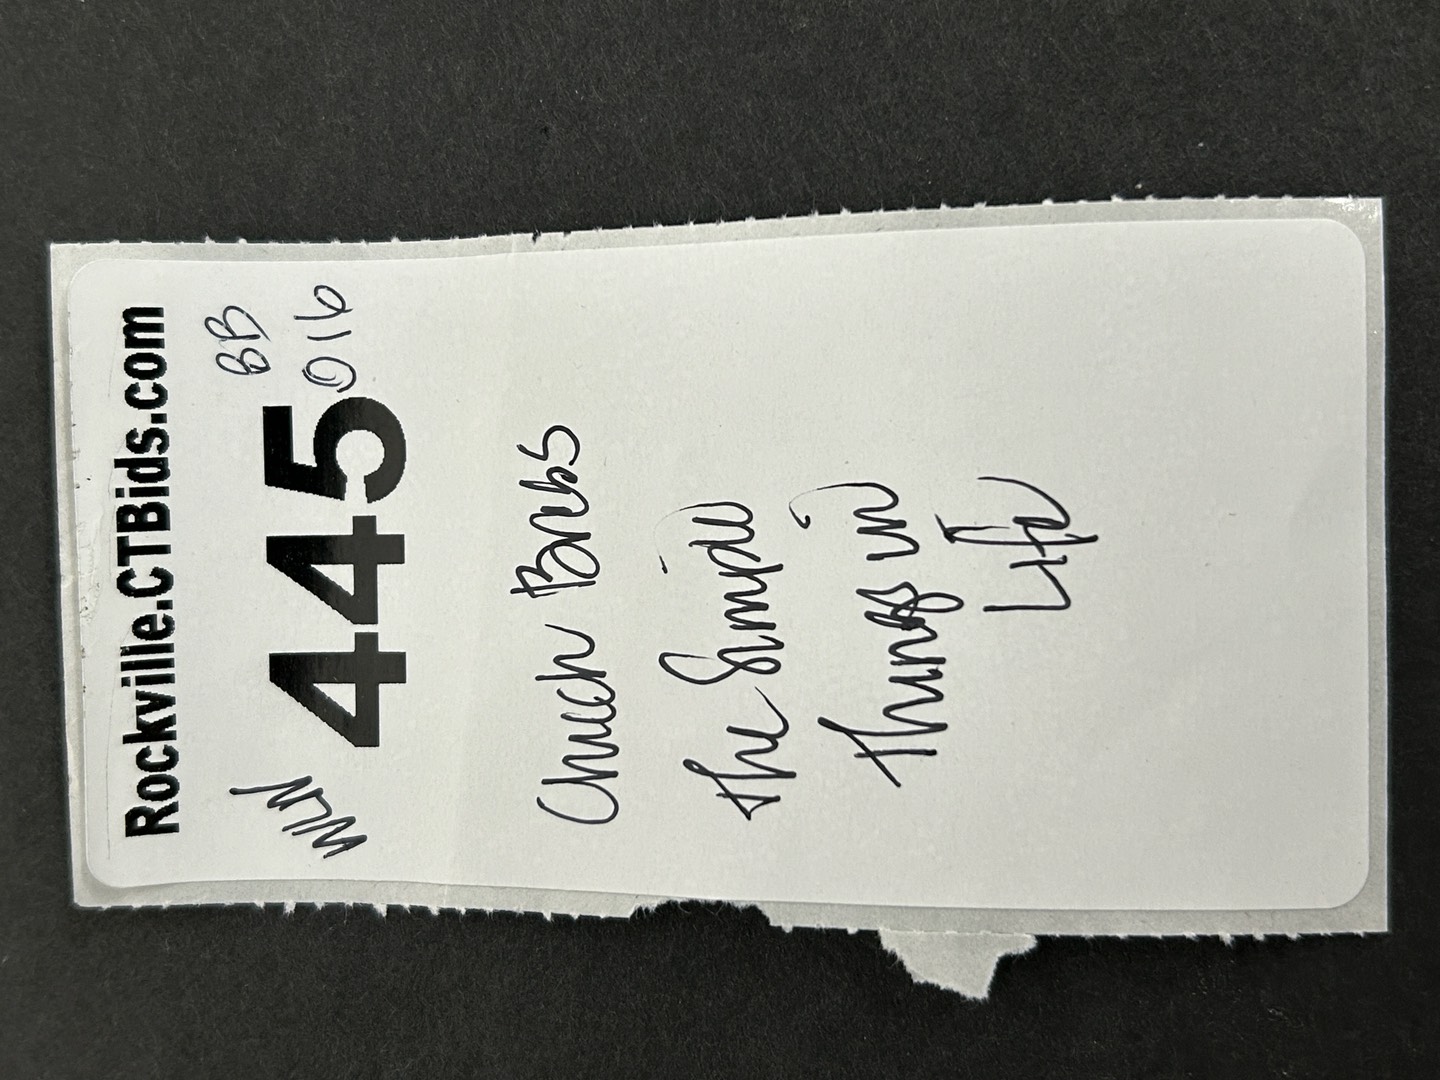 Rockville.CTBids.com
WLN 445 BB
016
Chuck Bnbs
The Simple
Things in
Life